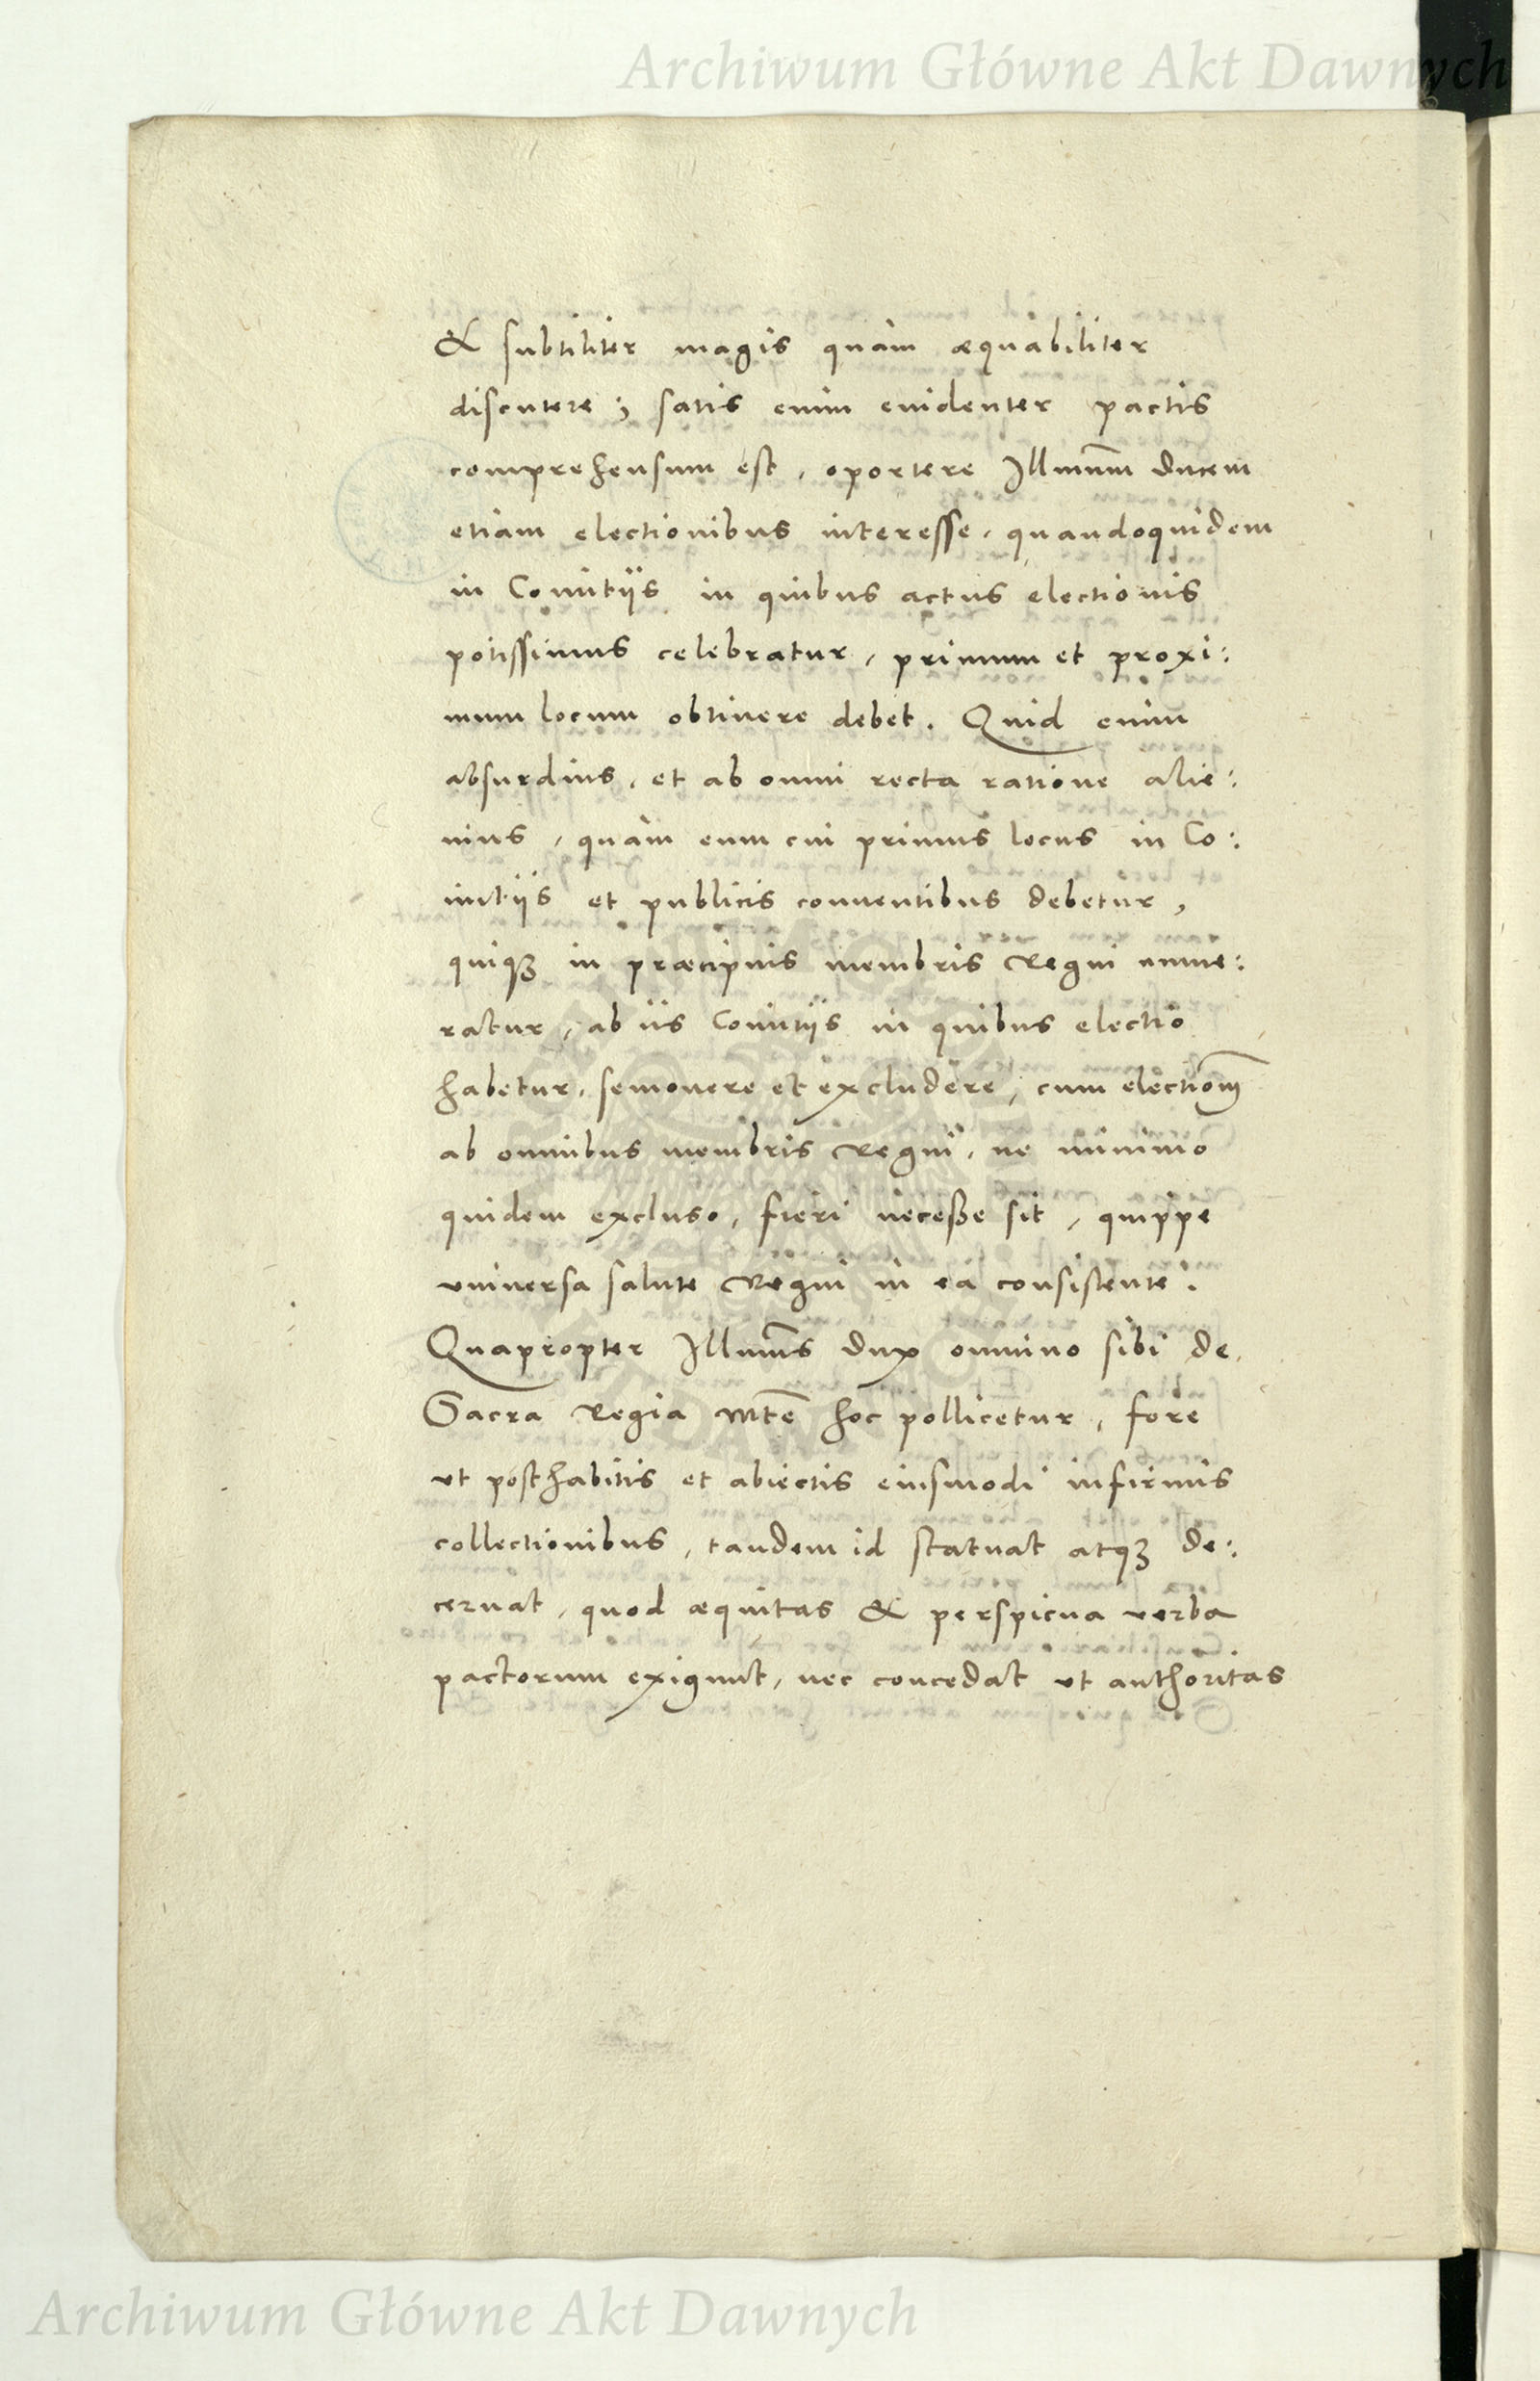 Archiwum Główne Akt Dawnych
& subtiliter magis quàm æquabiliter
discutere; satis enim euidenter pactis
comprehensum est, oportere Illmũm ducem
etiam electionibus interesse, quandoquidem
in Comitijs in quibus actus electionis
potissimus celebratur, primum et proxi:
mum locum obtinere debet. Quid enim
absurdius, et ab omni recta ratione alie:
nius, quàm eum cui primus locus in Co:
mitijs et publicis conuentibus debetur,
quiqȝ in præcipuis membris Regni nume:
ratur, ab iis Comitijs in quibus electio
habetur, semouere et excludere, cum electiõnẽ
ab omnibus membris Regni, ne minimo
quidem excluso, fieri necesse sit, quippe
vniuersa salute Regni in ea consistente.
Quapropter Illmũs dux omnino sibi de
Sacra Regia Mtẽ hoc pollicetur, fore
vt posthabitis et abiectis eiusmodi infirmis
collectionibus, tandem id statuat atqȝ de:
cernat, quod æquitas & perspicua verba
pactorum exigunt, nec concedat vt authoritas
Archiwum Główne Akt Dawnych